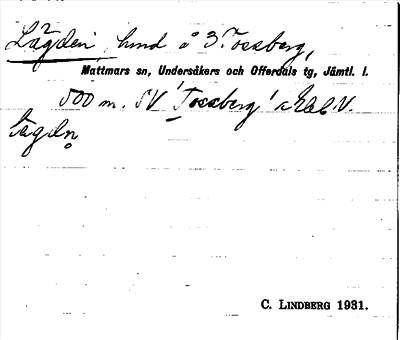 Lägden, hund å 3 Tossberg,
Mattmars sn, Undersåkers och Offerdals tg, Jämtl. l.
500 m. SV 'Tossberg' å Ekbl. V.
lägdn
C. LINDBERG 1931.